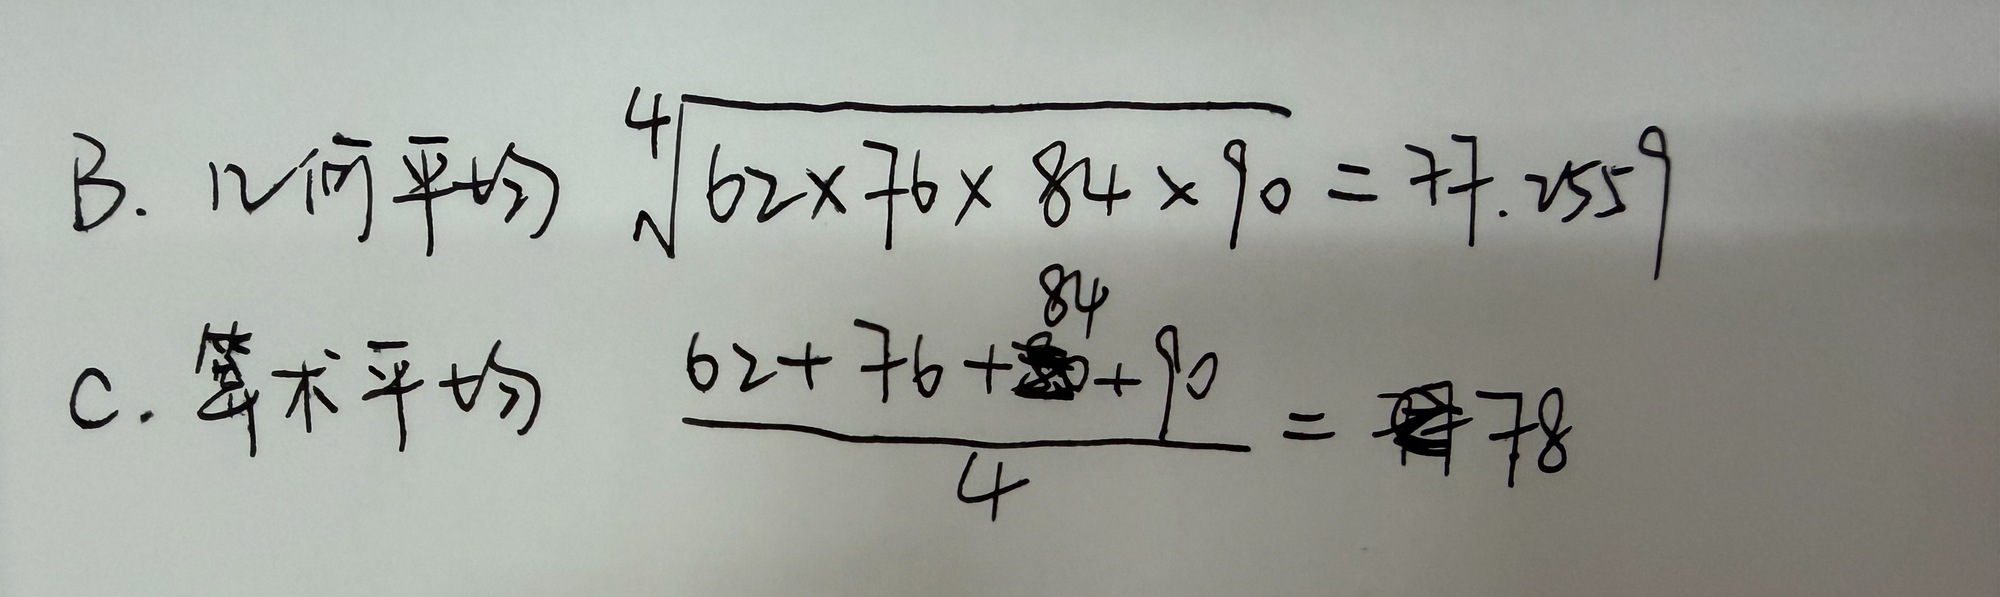 B. 几何平均 ∜(62×76×84×90) = 77.2559
C. 算术平均 (62+76+84+90)/4 = 78